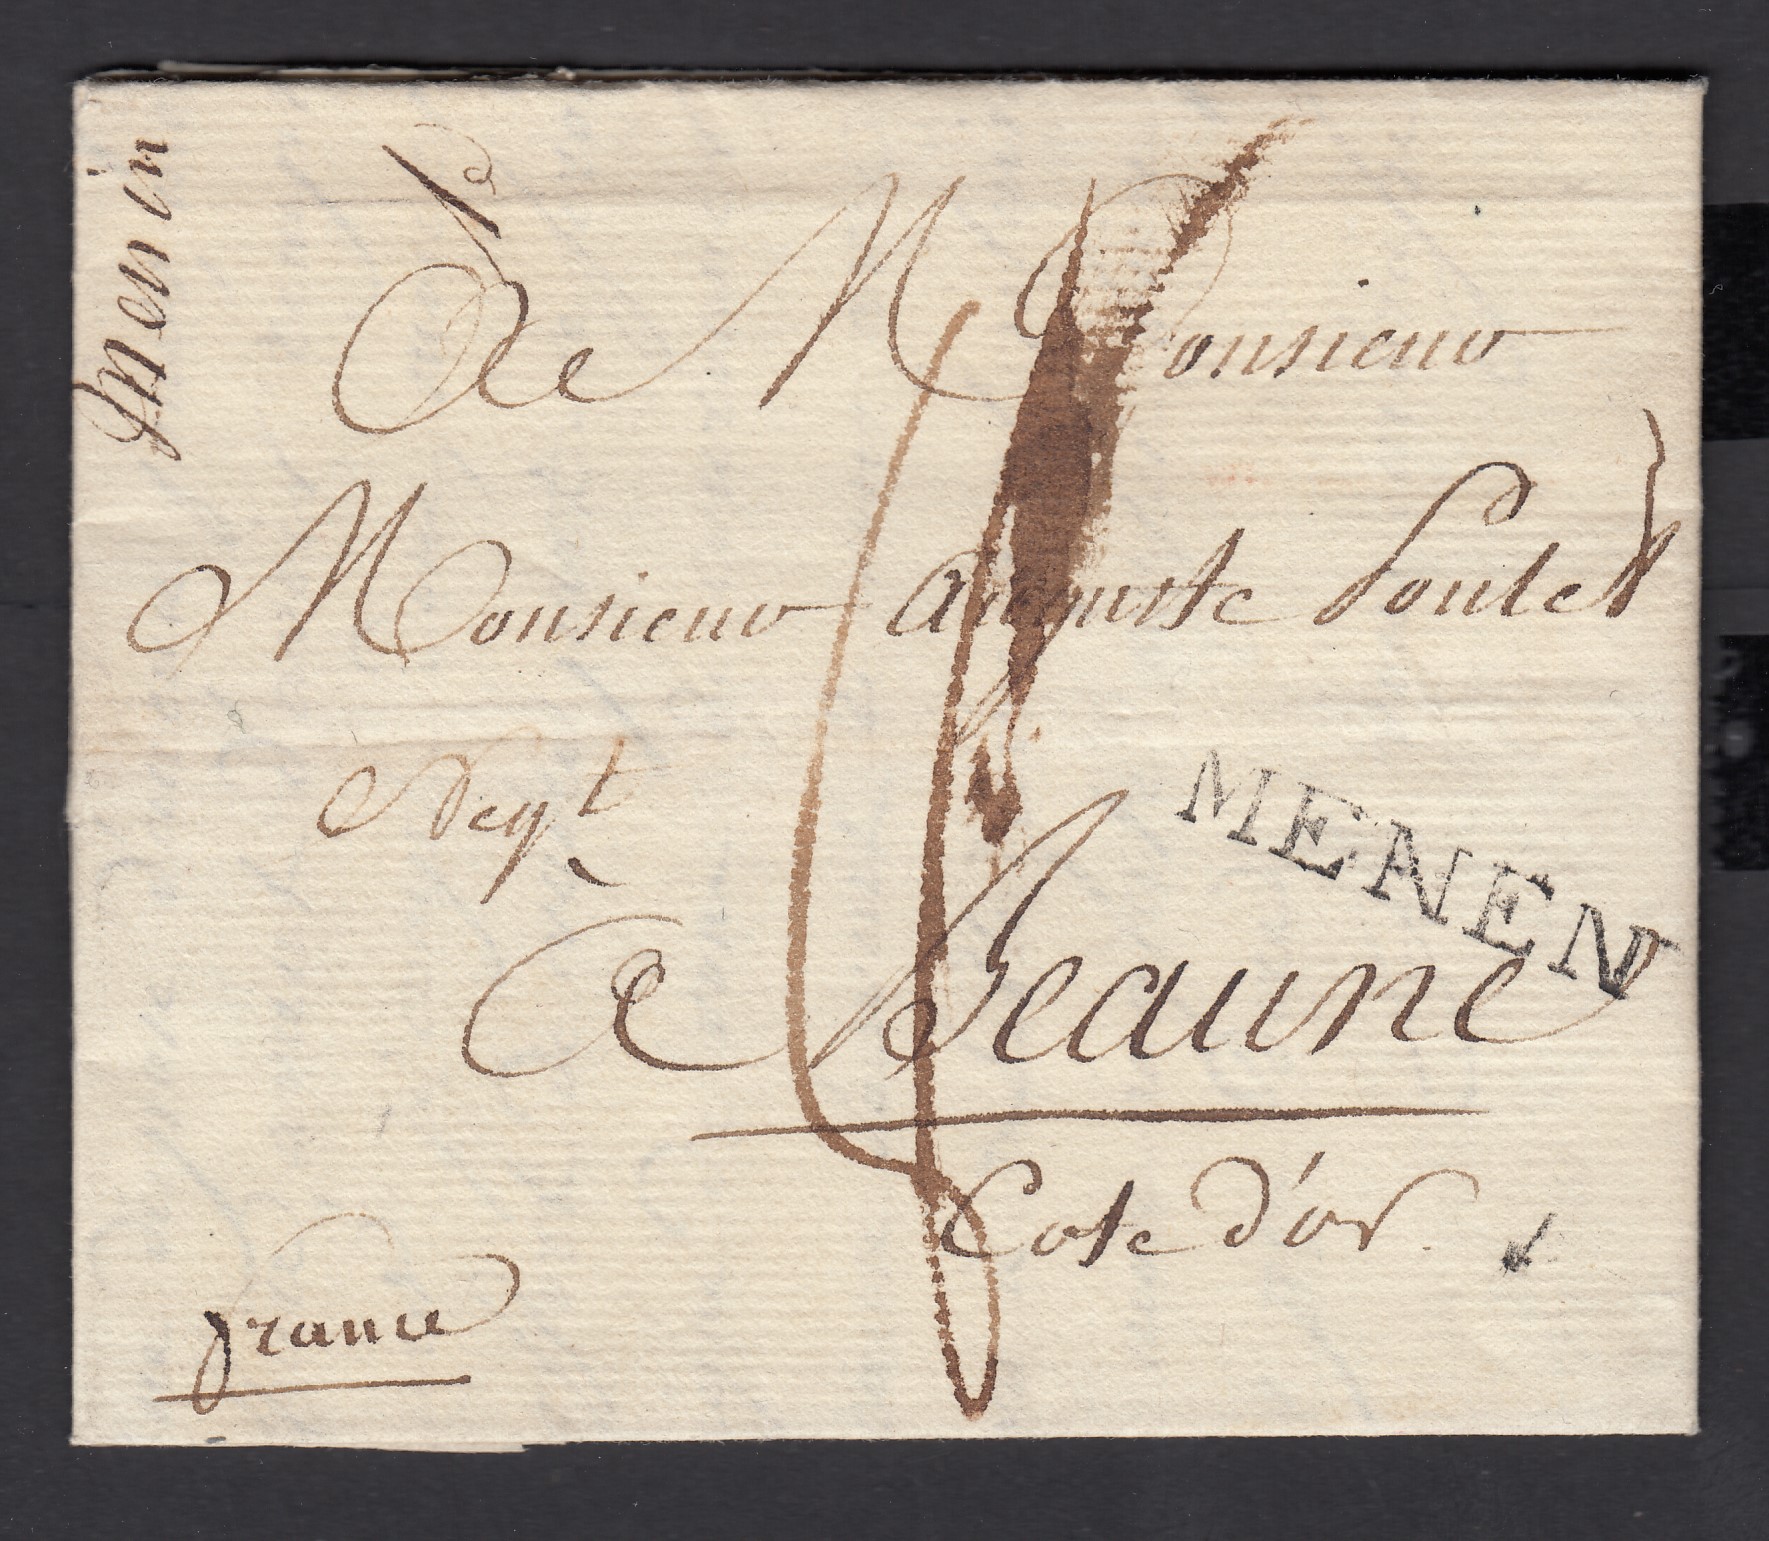 Menin
De Monsieur
Monsieur auguste Poulet
Negt
MENEN
a Beaune
Cote d'or.
france